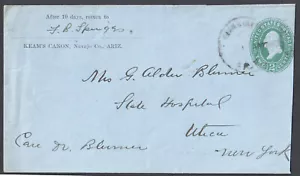 After 10 days, return to
KEAM'S CANON, Navajo Co., ARIZ.
Mrs G. Alder Blumer
State Hospital
Utica
Care Dr. Blumer
New York